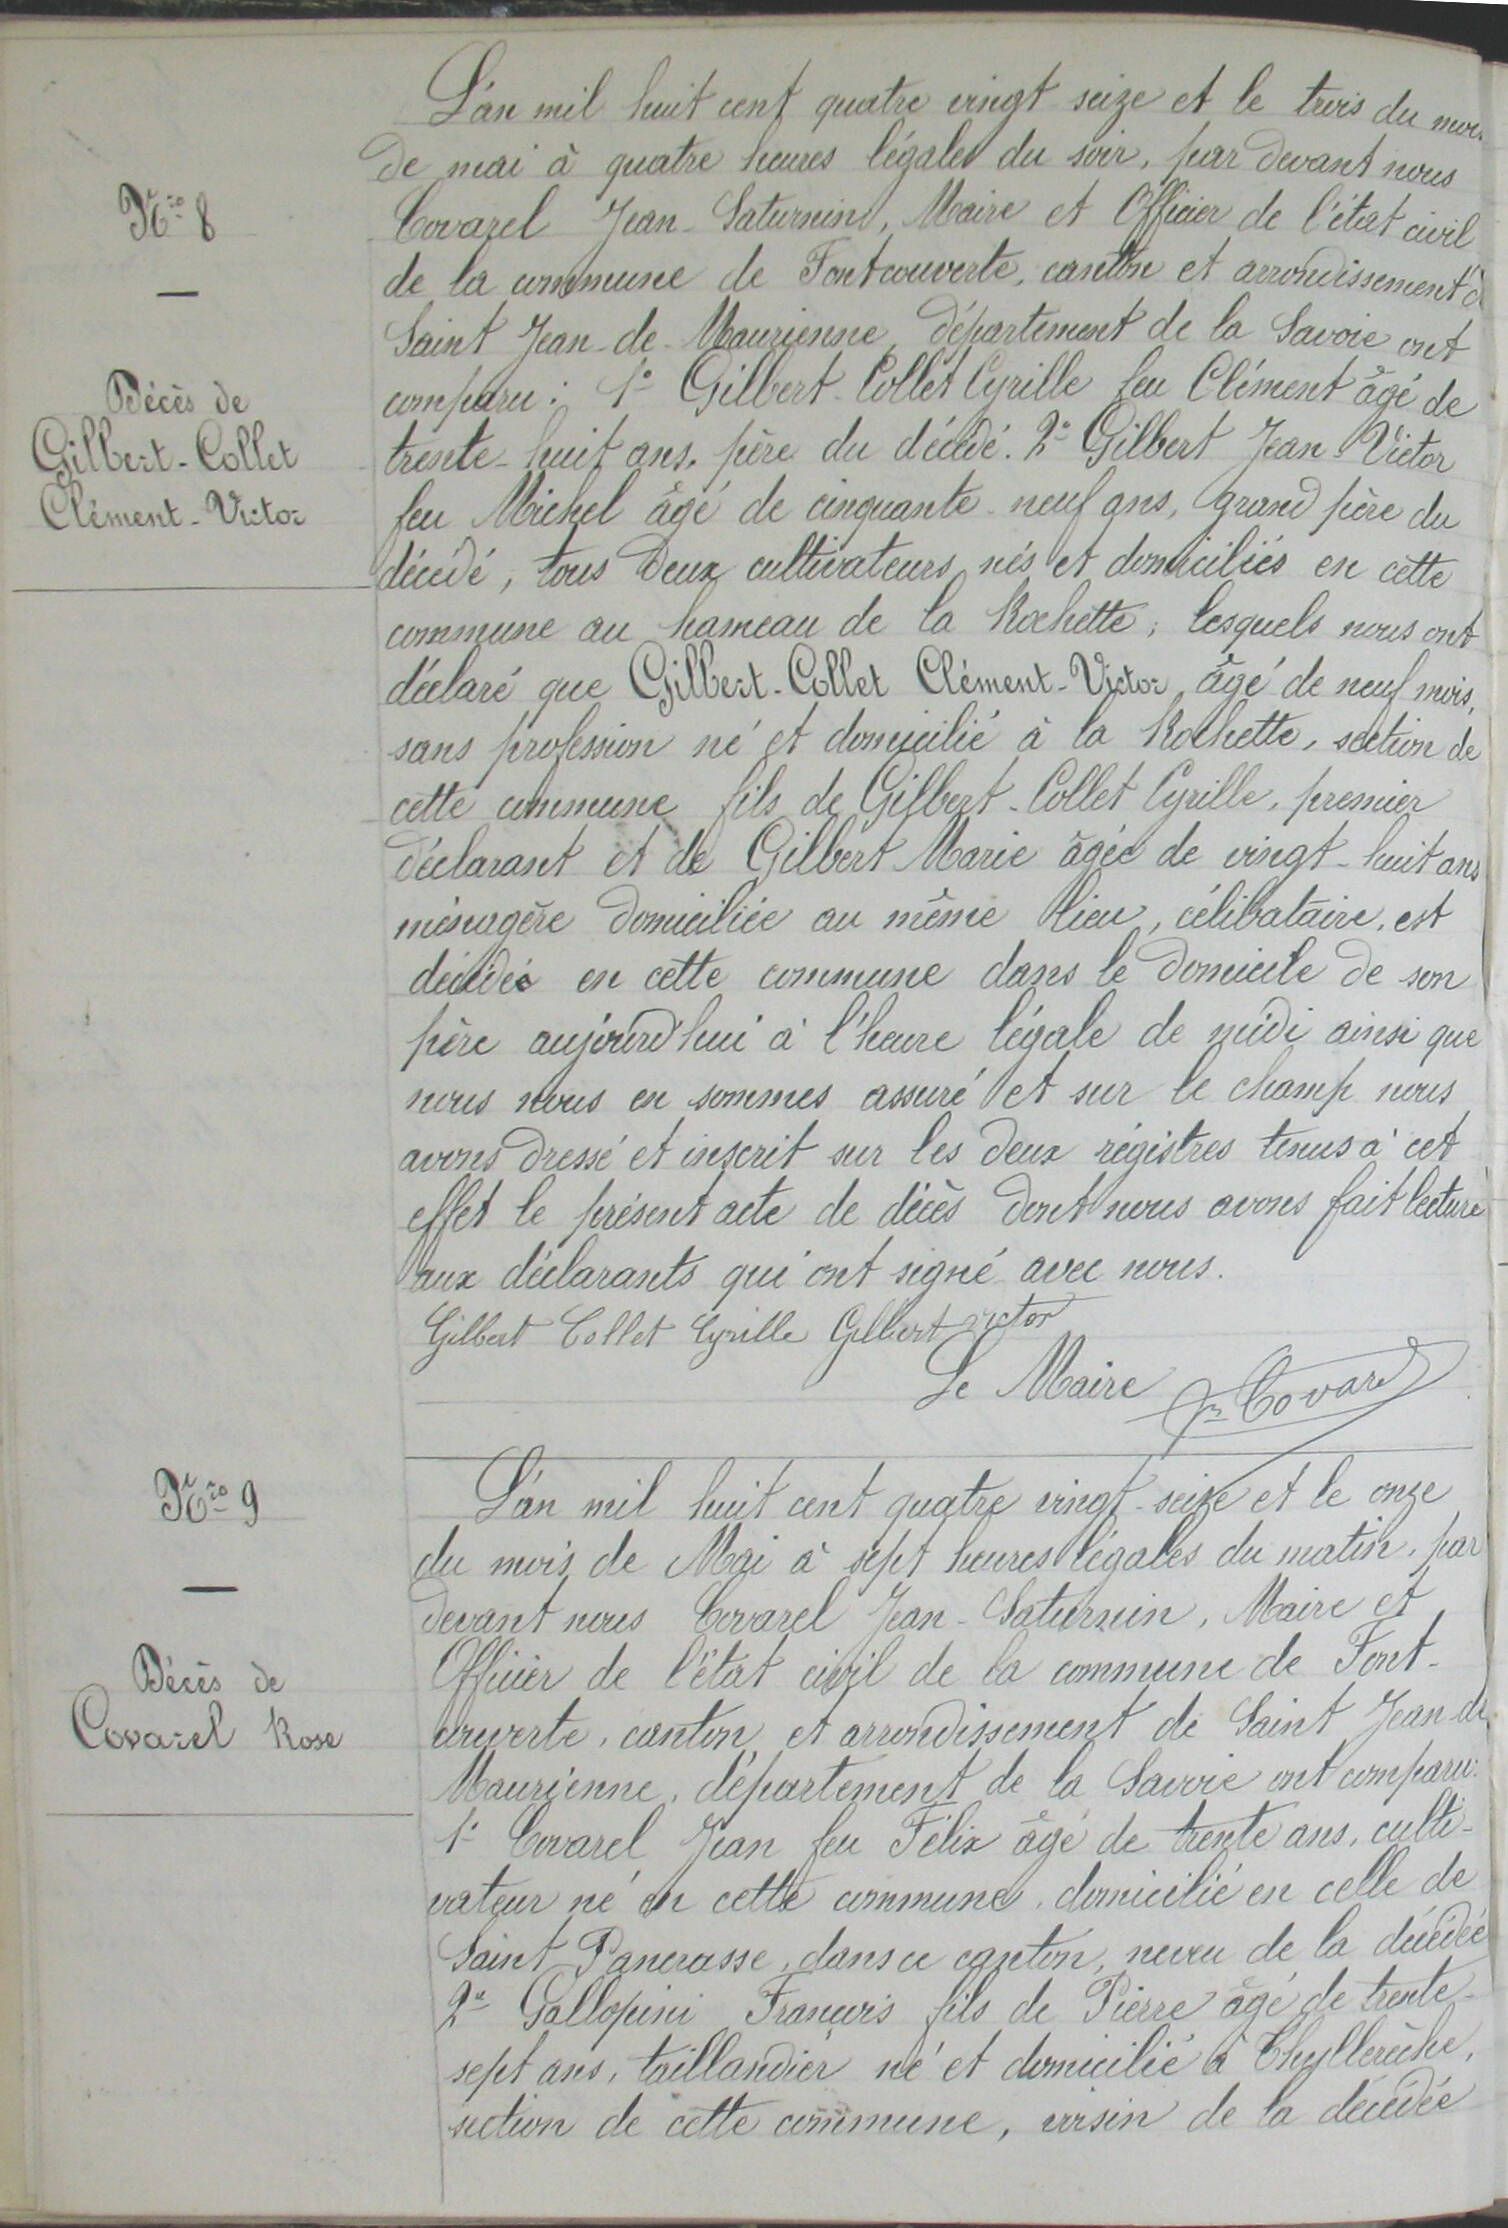 Nro 8
—
Décès de
Gilbert-Collet
Clément-Victor
L'an mil huit cent quatre vingt seize et le trois du mois
de mai à quatre heures légales du soir, par devant nous
Covarel Jean-Saturnin, Maire et Officier de l'état civil
de la commune de Fontcouverte, canton et arrondissement de
Saint Jean-de-Maurienne, département de la Savoie ont
comparu : 1° Gilbert-Collet Cyrille feu Clément âgé de
trente-huit ans, père du décédé. 2° Gilbert Jean-Victor
feu Michel âgé de cinquante-neuf ans, grand père du
décédé, tous deux cultivateurs nés et domiciliés en cette
commune au hameau de la Rochette, lesquels nous ont
déclaré que Gilbert-Collet Clément-Victor âgé de neuf mois,
sans profession né et domicilié à la Rochette, section de
cette commune fils de Gilbert-Collet Cyrille, premier
déclarant et de Gilbert Marie âgée de vingt-huit ans
ménagère domiciliée au même lieu, célibataire, est
décédé en cette commune dans le domicile de son
père aujourd'hui à l'heure légale de midi ainsi que
nous nous en sommes assuré et sur le champ nous
avons dressé et inscrit sur les deux régistres tenus à cet
effet le présent acte de décès dont nous avons fait lecture
aux déclarants qui ont signé avec nous.
Gilbert Collet Cyrille Gilbert victor
Le Maire Jn Covarel
Nro 9
—
Décès de
Covarel Rose
L'an mil huit cent quatre vingt-seize et le onze
du mois de Mai à sept heures légales du matin, par
devant nous Covarel Jean-Saturnin, Maire et
Officier de l'état civil de la commune de Font-
couverte, canton et arrondissement de Saint Jean-de
Maurienne, département de la Savoie ont comparu:
1° Covarel Jean feu Félix âgé de trente ans, culti-
vateur né en cette commune, domicilié en celle de
Saint Pancrasse, dans ce canton, neveu de la décédée
2° Gallopini François fils de Pierre âgé de trente-
sept ans, taillandier né et domicilié à Chyllerèche,
section de cette commune, voisin de la décédée